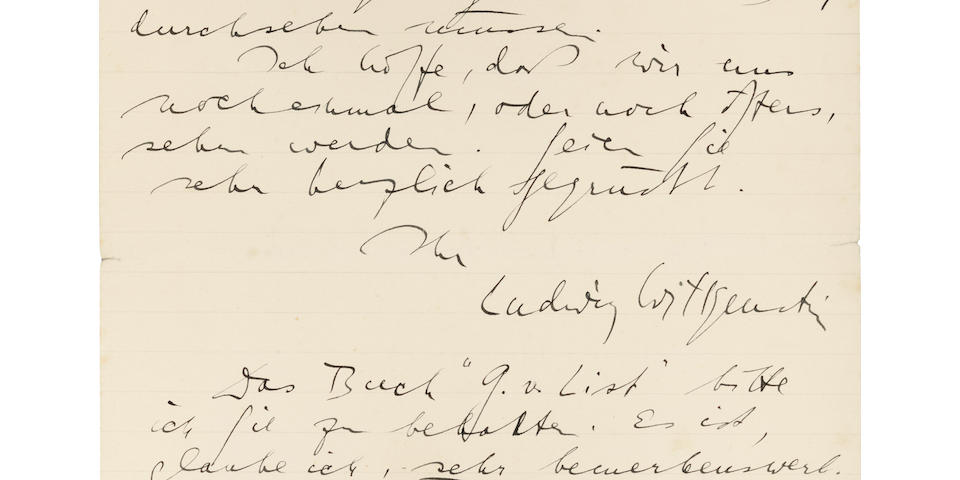 durchsehen müssen.
Ich hoffe, daß wir uns
noch einmal, oder noch öfters,
sehen werden. Seien Sie
sehr herzlich gegrüßt.
Ihr
Ludwig Wittgenstein
Das Buch "G. v. List" bitte
ich Sie zu behalten. Es ist,
glaube ich, sehr bemerkenswert.